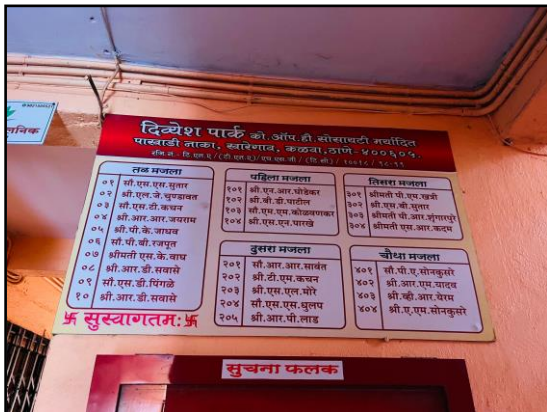 लनिक
दिव्येश पार्क को.ऑप.ही.सोसायटी मर्यादित
पाखाडी नाका, खारेगाव, कळवा,ठाणे-४००६०५.
तळ मजला
०१ सौ.एस.एस.सुतार
०२ श्री.एल.जे.चुण्डावत
०३ सौ.एस.टी.कचन
०४ श्री.आर.आर.जयराम
०५ सौ.पी.के.जाधव
०६ सौ.पी.बी.रजपूत
०७ श्रीमती एस.के.वाघ
०८ श्री.आर.डी.सवासे
०९ सौ.एस.डी.पिंगळे
१० श्री.आर.डी.सवासे
पहिला मजला
१०१ श्री.एन.आर.घोडेकर
१०२ श्री.बी.डी.पाटील
१०३ सौ.एम.एम.कोळवणकर
१०४ श्री.एस.एन.पारखे
दुसरा मजला
२०१ सौ.आर.आर.सावंत
२०२ श्री.टी.एम.कचन
२०३ श्री.एस.एल.मोरे
२०४ सौ.एस.एस.धुलप
२०५ श्री.आर.पी.लाड
तिसरा मजला
३०१ श्रीमती पी.एम.खत्री
३०२ श्री.एस.बी.सुतार
३०३ श्रीमती पी.आर.शृंगारपुरे
३०४ श्रीमती एस.आर.कदम
चौथा मजला
४०१ सौ.पी.ए.सोनकुसरे
४०२ श्री.आर.एम.यादव
४०३ श्री.व्ही.आर.येरम
४०४ श्री.ए.एम.सोनकुसरे
卐 सुस्वागतम: 卐
सुचना फलक